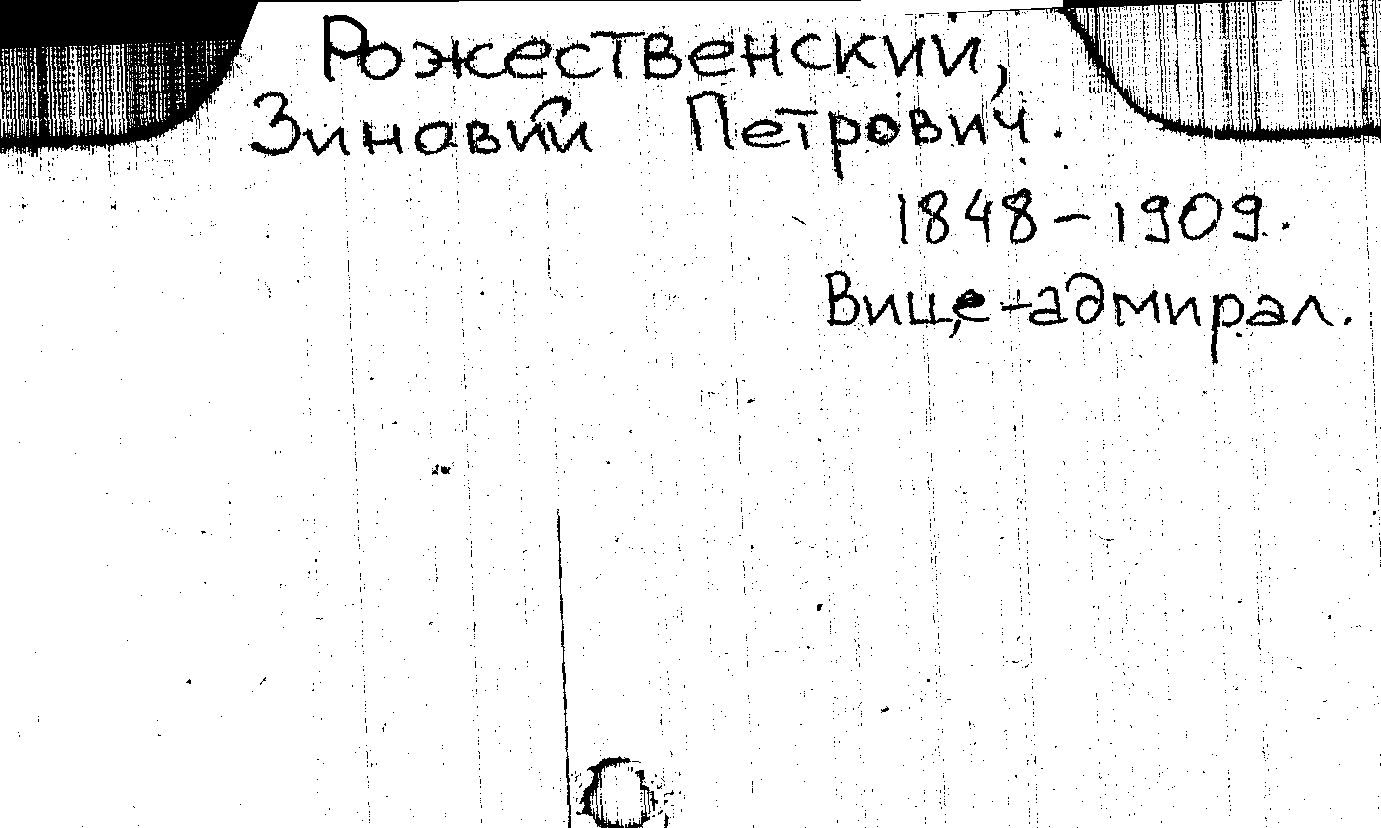 Рожественский,
Зиновий Петрович.
1848-1909.
Вице-адмирал.